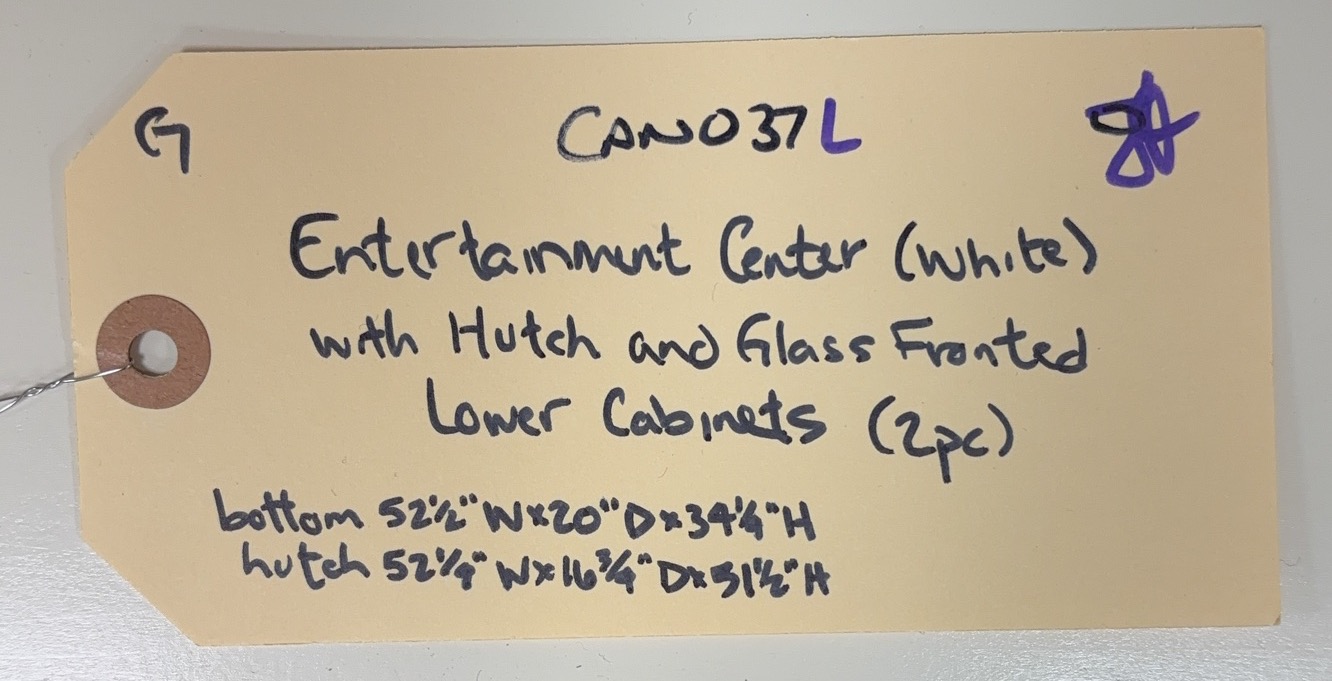 G CANO37L
Entertainment Center (white)
with Hutch and Glass Fronted
Lower Cabinets (2pc)
bottom 52½" W x 20" D x 34¼" H
hutch 52¼" W x 16¾" D x 51½" H